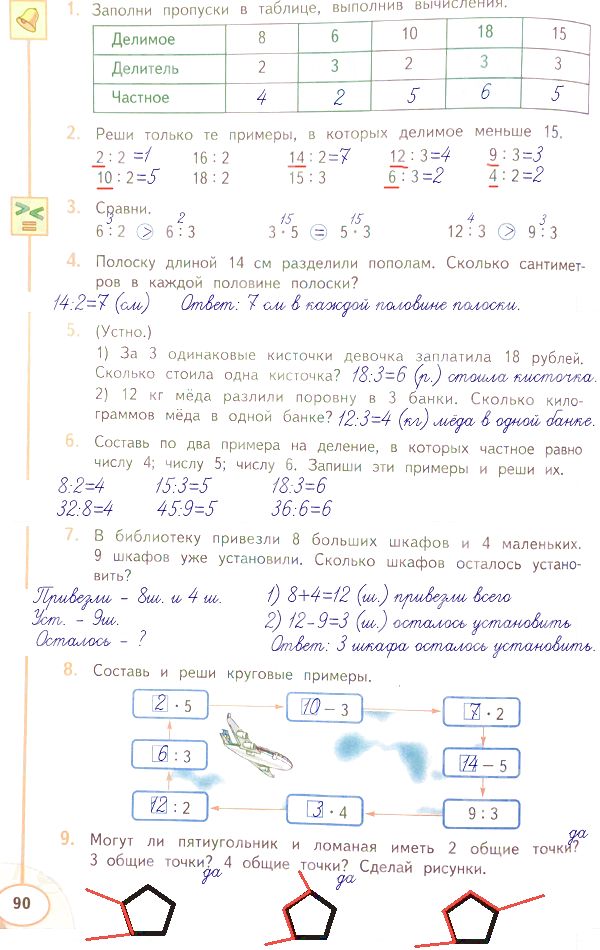 1. Заполни пропуски в таблице, выполнив вычисления.
Делимое 8 6 10 18 15
Делитель 2 3 2 3 3
Частное 4 2 5 6 5
2. Реши только те примеры, в которых делимое меньше 15.
2 : 2 =1 16 : 2 14 : 2 =7 12 : 3 =4 9 : 3 =3
10 : 2 =5 18 : 2 15 : 3 6 : 3 =2 4 : 2 =2
3. Сравни.
3 2 15 15 4 3
6 : 2 > 6 : 3 3 · 5 = 5 · 3 12 : 3 > 9 : 3
4. Полоску длиной 14 см разделили пополам. Сколько сантимет-
ров в каждой половине полоски?
14:2=7 (см) Ответ: 7 см в каждой половине полоски.
5. (Устно.)
1) За 3 одинаковые кисточки девочка заплатила 18 рублей.
Сколько стоила одна кисточка? 18:3=6 (р.) стоила кисточка.
2) 12 кг мёда разлили поровну в 3 банки. Сколько кило-
граммов мёда в одной банке? 12:3=4 (кг) мёда в одной банке.
6. Составь по два примера на деление, в которых частное равно
числу 4; числу 5; числу 6. Запиши эти примеры и реши их.
8:2=4 15:3=5 18:3=6
32:8=4 45:9=5 36:6=6
7. В библиотеку привезли 8 больших шкафов и 4 маленьких.
9 шкафов уже установили. Сколько шкафов осталось устано-
вить?
Привезли - 8ш. и 4 ш. 1) 8+4=12 (ш.) привезли всего
Уст. - 9ш. 2) 12-9=3 (ш.) осталось установить
Осталось - ? Ответ: 3 шкафа осталось установить.
8. Составь и реши круговые примеры.
2 · 5 10 – 3 7 · 2
6 : 3 14 – 5
12 : 2 3 · 4 9 : 3
9. Могут ли пятиугольник и ломаная иметь 2 общие точки? да
3 общие точки? да 4 общие точки? да Сделай рисунки.
90